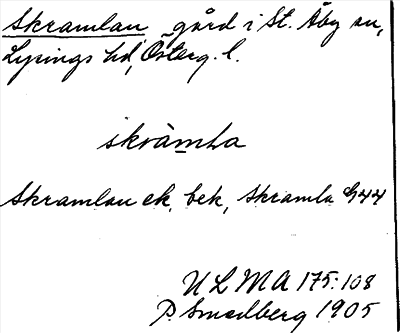 Skramlan gård i St. Åby sn,
Lysings hd, Österg. l.
skràmla
Skramlan ek. bek, Skramla G44
ULMA 175:108
P Smedberg 1905